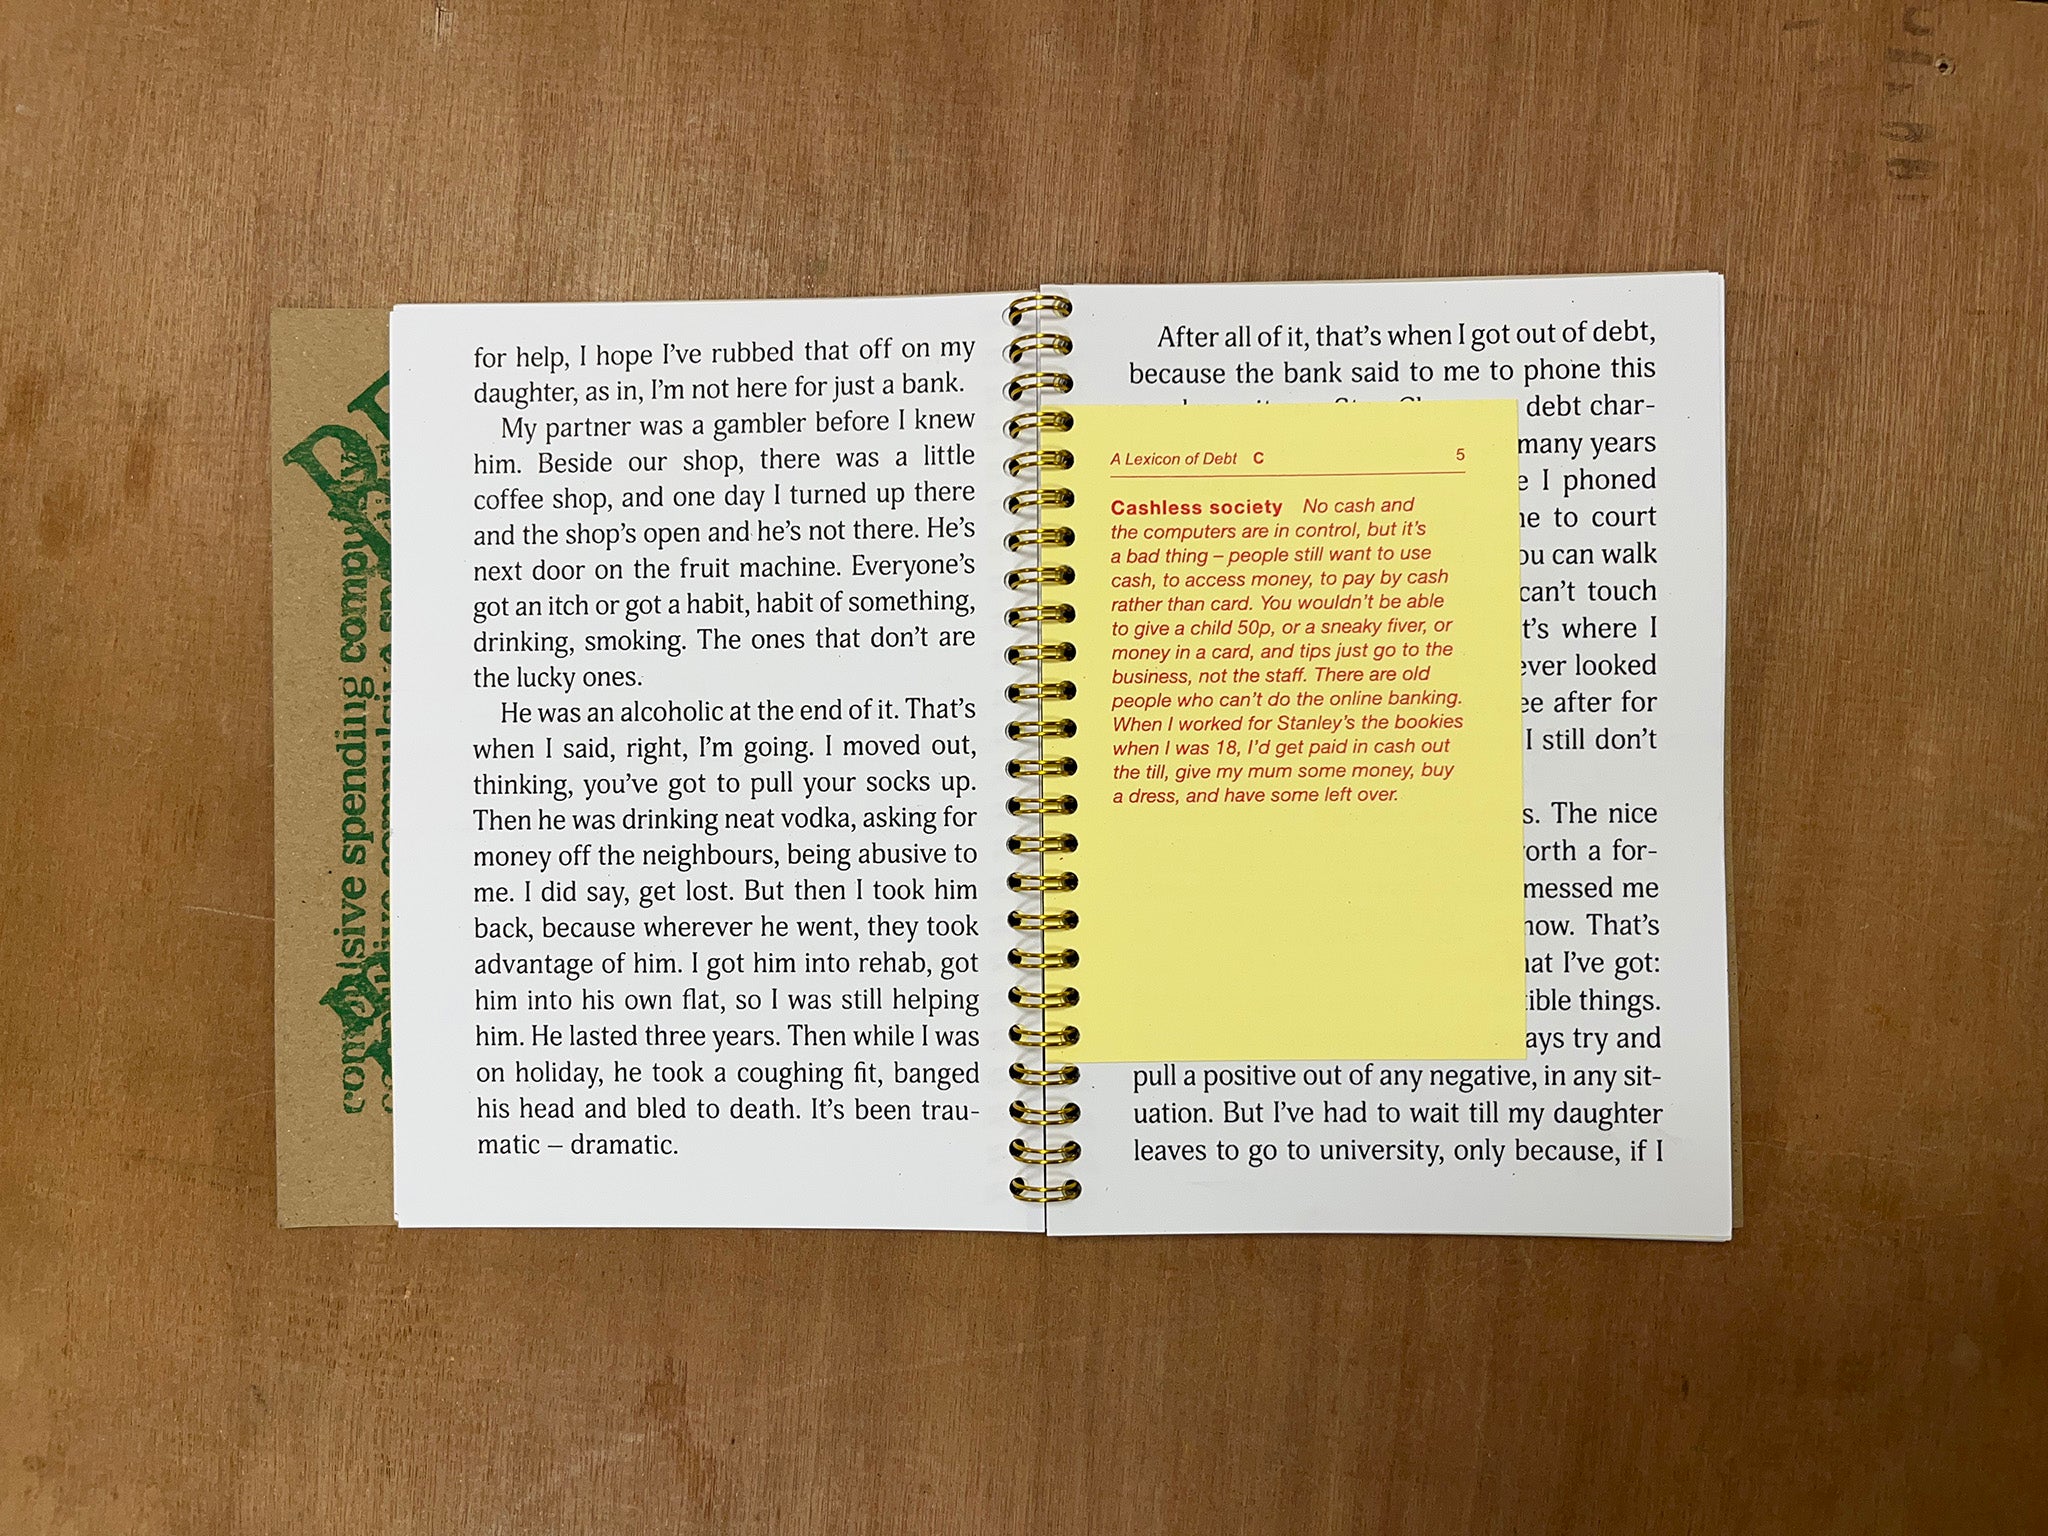 compulsive spending compulsiv
for help, I hope I've rubbed that off on my
daughter, as in, I'm not here for just a bank.
My partner was a gambler before I knew
him. Beside our shop, there was a little
coffee shop, and one day I turned up there
and the shop's open and he's not there. He's
next door on the fruit machine. Everyone's
got an itch or got a habit, habit of something,
drinking, smoking. The ones that don't are
the lucky ones.
He was an alcoholic at the end of it. That's
when I said, right, I'm going. I moved out,
thinking, you've got to pull your socks up.
Then he was drinking neat vodka, asking for
money off the neighbours, being abusive to
me. I did say, get lost. But then I took him
back, because wherever he went, they took
advantage of him. I got him into rehab, got
him into his own flat, so I was still helping
him. He lasted three years. Then while I was
on holiday, he took a coughing fit, banged
his head and bled to death. It's been trau-
matic – dramatic.
After all of it, that's when I got out of debt,
because the bank said to me to phone this
debt char-
many years
I phoned
to court
can walk
can't touch
where I
looked
after for
I still don't
The nice
a for-
messed me
now. That's
I've got:
things.
try and
pull a positive out of any negative, in any sit-
uation. But I've had to wait till my daughter
leaves to go to university, only because, if I
A Lexicon of Debt C 5
Cashless society No cash and
the computers are in control, but it's
a bad thing – people still want to use
cash, to access money, to pay by cash
rather than card. You wouldn't be able
to give a child 50p, or a sneaky fiver, or
money in a card, and tips just go to the
business, not the staff. There are old
people who can't do the online banking.
When I worked for Stanley's the bookies
when I was 18, I'd get paid in cash out
the till, give my mum some money, buy
a dress, and have some left over.